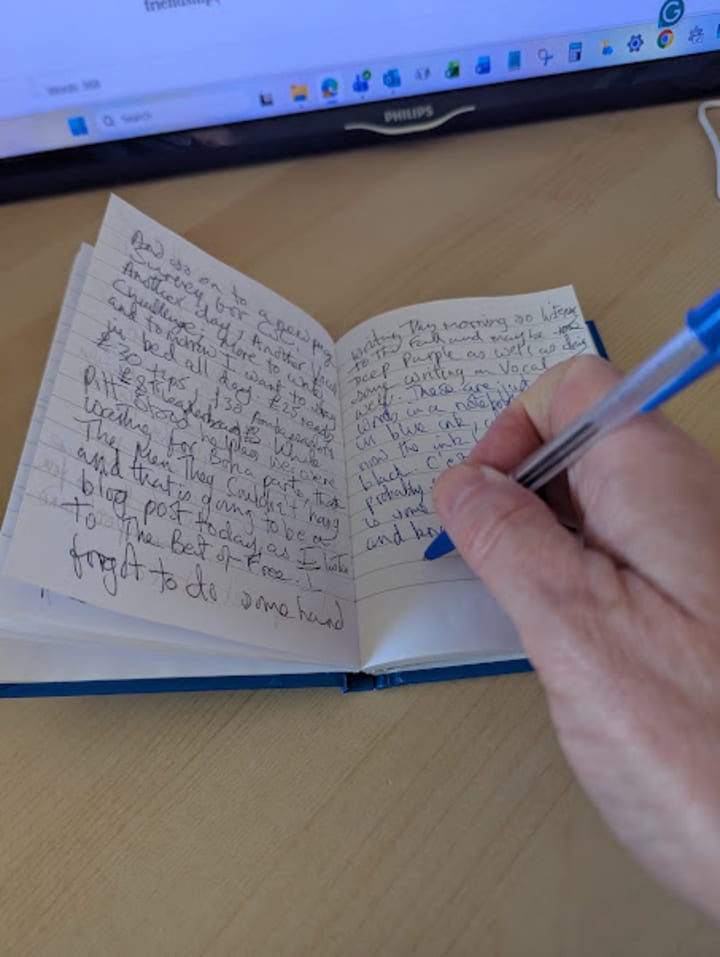 friendship
Words: 368
Search
PHILIPS
And so on to a new page
Survey for
Another day, Another Vocal
Challenge. More to write
and tomorrow I want to
in bed all day. £25 reads
£30 tips, £30
£85 leaderboard. While
Pitt Stood helpless we were
waiting for Bonaparte,
The Men They Couldn't Hang
and that is going to be a
blog post today, as I listen
to The Best of Free. I
forgot to do some hand
writing this morning so listening
to The Fall and maybe some
Deep Purple as well as doing
some writing on Vocal as
well. These are just
words in a notebook
in blue ink,
now the ink
black.
probably
is some
and